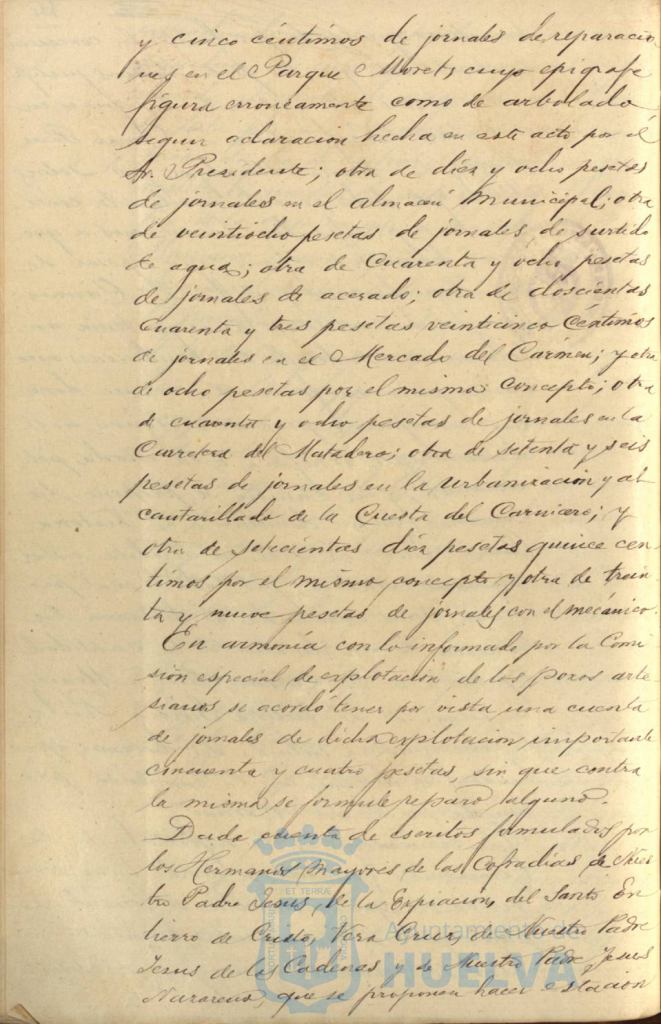 y cinco céntimos de jornales de reparacio
nes en el Parque Moret, cuyo epigrafe
figura erroneamente como de arbolado
segun aclaracion hecha en este acto por el
Sr. Presidente; otra de diez y ocho pesetas
de jornales en el Almacen Municipal; otra
de veintiocho pesetas de jornales de surtido
de agua; otra de Cuarenta y ocho pesetas
de jornales de acerado; otra de doscientas
cuarenta y tres pesetas veinticinco Céntimos
de jornales en el Mercado del Carmen; y otra
de ocho pesetas por el mismo concepto; otra
de cuarenta y ocho pesetas de jornales en la
Carretera del Matadero; otra de setenta y seis
pesetas de jornales en la urbanizacion y al
cantarillado de la Cuesta del Carnicero; y
otra de setecientas diez pesetas quince cen
timos por el mismo concepto y otra de trein
ta y nueve pesetas de jornales con el mecánico.
En armonía con lo informado por la Comi
sion especial de explotación de los pozos arte
sianos se acordó tener por vista una cuenta
de jornales de dicha explotacion importante
cincuenta y cuatro pesetas, sin que contra
la misma se formule reparo alguno.
Dada cuenta de escritos formulados por
los Hermanos Mayores de las Cofradias de Nues
tro Padre Jesus, de la Expiacion, del Santo En
tierro de Cristo, Vera Cruz, de Nuestro Padre
Jesus de las Cadenas y de Nuestro Padre Jesus
Nazareno, que se proponen hacer estacion
Ayuntamiento de
HUELVA